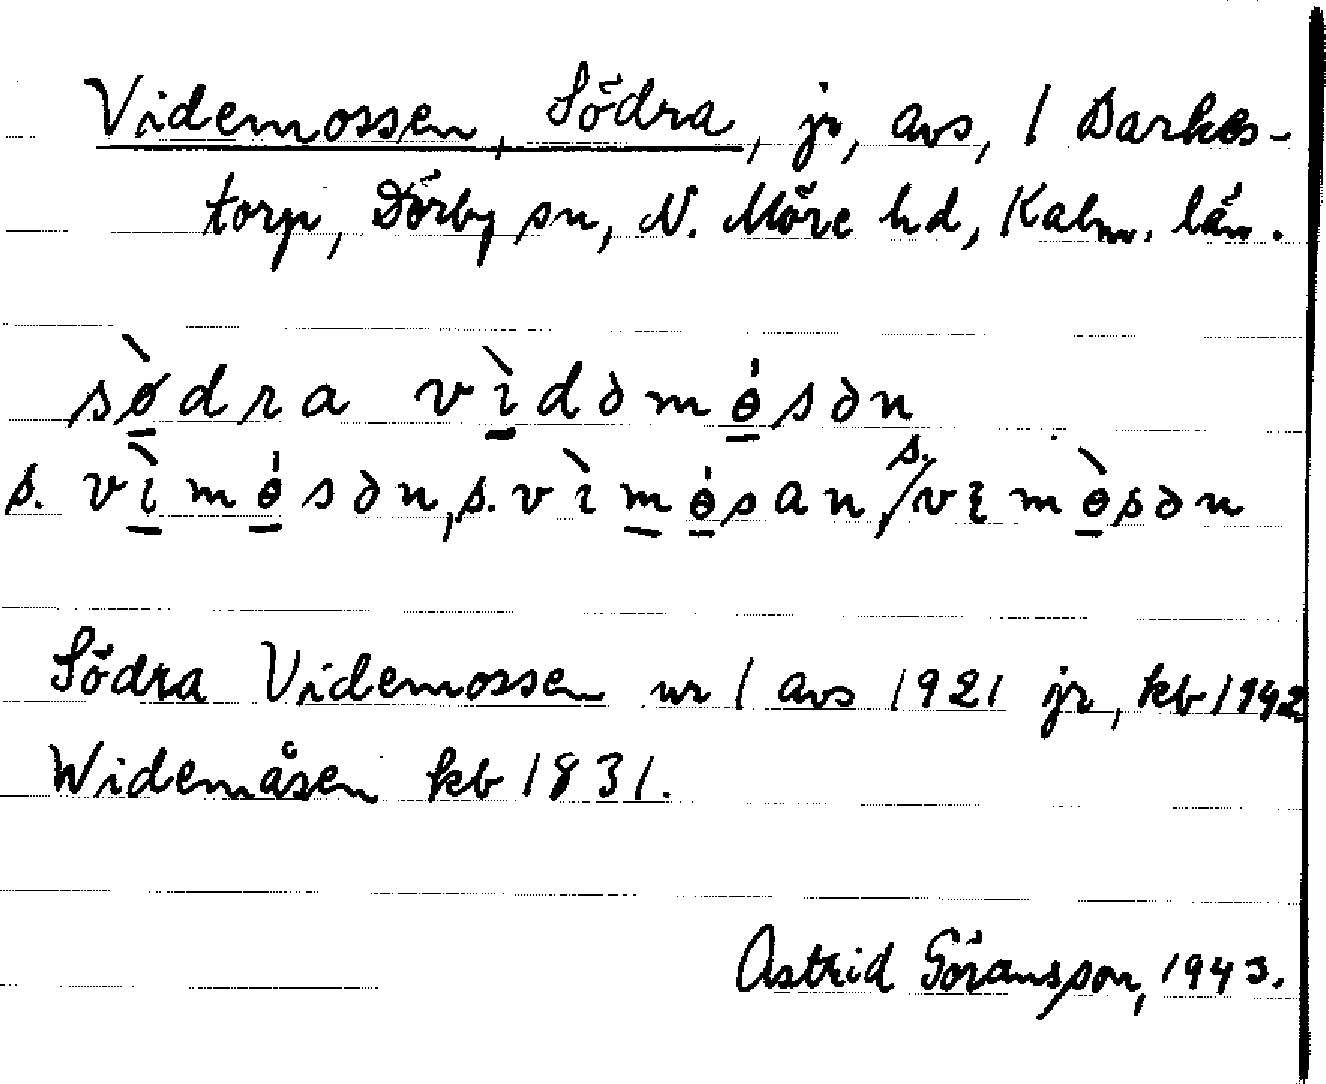 Videmossen, Södra, jr, avs, 1 Barkes-
torp, Dörby sn, N. Möre hd, Kalm. län.
sø̀dra vìdəmɵ́sən
s. vìmɵ́sən, s. vìmɵ́san, s. vɪmɵ̀sən
Södra Videmossen nr 1 avs 1921 jr, kb 1942
Widemåsen kb 1831.
Astrid Göransson, 1943.